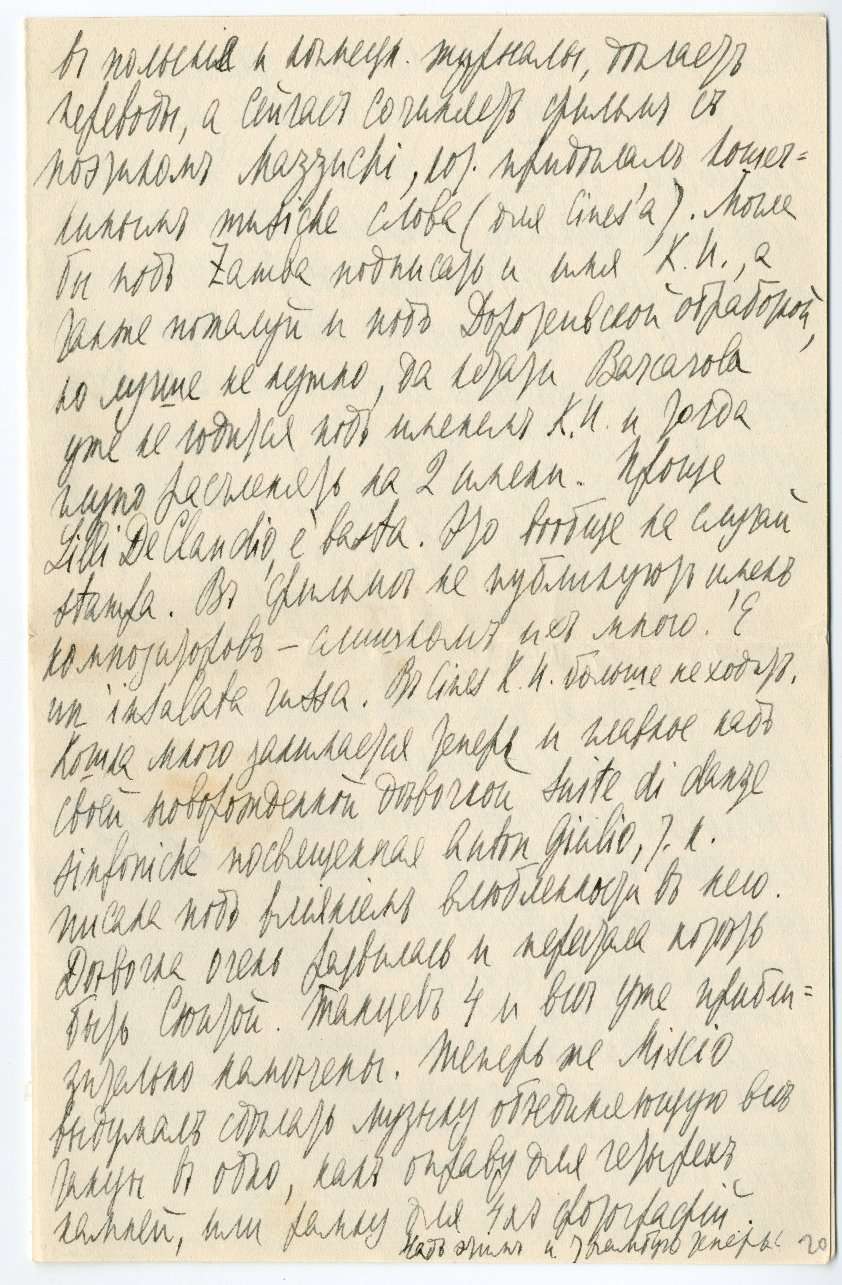 въ польскіе и конецп. журналы, дѣлаетъ
переводы, а сейчасъ сочиняетъ фильмъ съ
поэтикомъ Mazzuchi, кот. придѣлалъ кошеч=
кинымъ musiche слова (для Cines'а). Можно
бы подъ Zamba подписать и имя К.И., а
также пожалуй и подъ Доротеивской обработкой,
но лучше не нужно, да кстати Варкарола
уже не годится подъ именемъ К.И. и тогда
нужно расчленять на 2 имени. Проще
Lilli De Claudio, e basta. Это вообще на случай
stampa. Въ фильмѣ не публикуютъ именъ
композиторовъ – слишкомъ ихъ много. 'E
un' insalata russa. Въ Cines К.И. больше не ходитъ.
Кошка много занимается теперь и главное надъ
своей новорожденной дѣвочкой Suite di danze
sinfoniche посвященная Anton Giulio, т.к.
писана подъ вліяніемъ влюбленности въ него.
Дѣвочка очень развилась и перестала
быть Сюитой. Танцевъ 4 и всѣ уже прибли=
зительно намѣчены. Теперь же Miscio
выдумалъ сдѣлать музыку объединяющую всѣ
танцы въ одно, какъ оправу для четырехъ
камней, или рамку для 4хъ фотографій.
Надъ этимъ и теперь
20